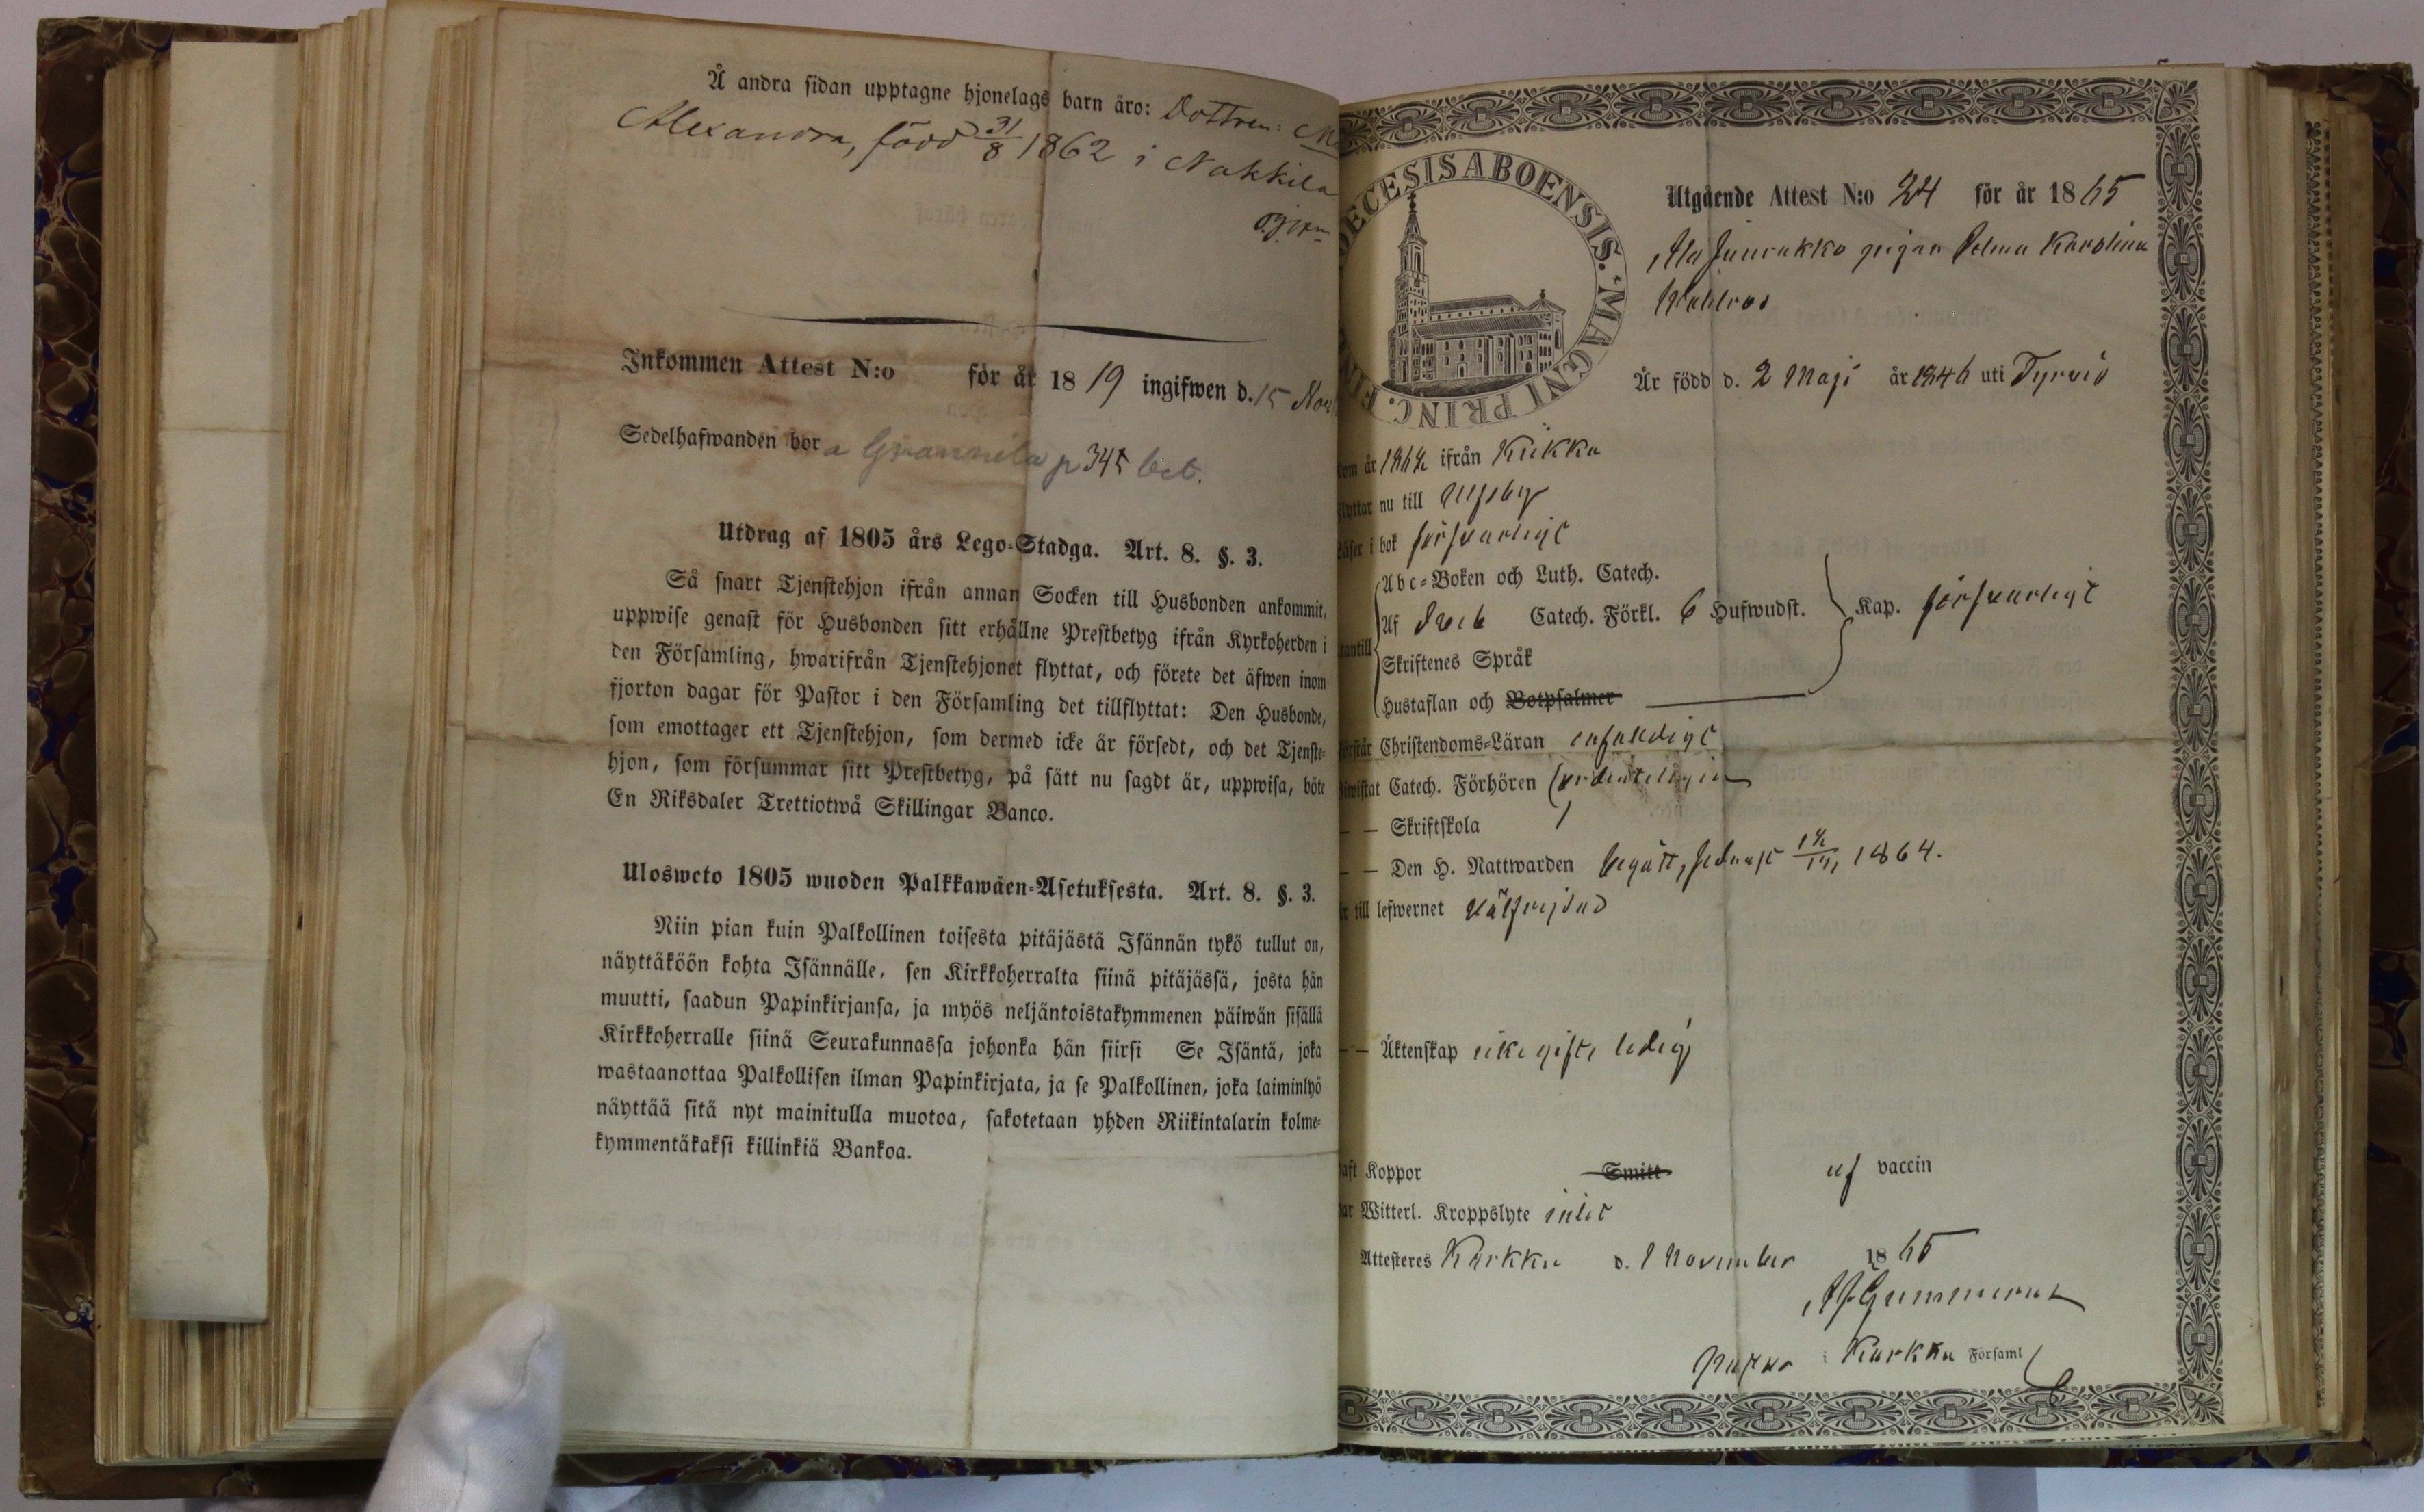 Å andra sidan upptagne hjonelags barn äro: Dottren:
Alexandra, född 31/8 1862 i Nakkila
Inkommen Attest N:o för år 18 19 ingifwen d. 15 Nov
Sedelhafwanden bor a Grannila p 345
Utdrag af 1805 års Lego-Stadga. Art. 8. §. 3.
Så snart Tjenstehjon ifrån annan Socken till Husbonden ankommit,
uppwise genast för Husbonden sitt erhållne Prestbetyg ifrån Kyrkoherden i
den Församling, hwarifrån Tjenstehjonet flyttat, och förete det äfwen inom
fjorton dagar för Pastor i den Församling det tillflyttat: Den Husbonde,
som emottager ett Tjenstehjon, som dermed icke är försedt, och det Tjenste-
hjon, som försummar sitt Prestbetyg, på sätt nu sagdt är, uppwisa, böte
En Riksdaler Trettiotwå Skillingar Banco.
Ulosweto 1805 wuoden Palkkawäen-Asetuksesta. Art. 8. §. 3.
Niin pian kuin Palkollinen toisesta pitäjästä Isännän tykö tullut on,
näyttäköön kohta Isännälle, sen Kirkkoherralta siinä pitäjässä, josta hän
muutti, saadun Papinkirjansa, ja myös neljäntoistakymmenen päiwän sisällä
Kirkkoherralle siinä Seurakunnassa johonka hän siirsi Se Isäntä, joka
wastaanottaa Palkollisen ilman Papinkirjata, ja se Palkollinen, joka laiminlyö
näyttää sitä nyt mainitulla muotoa, sakotetaan yhden Riikintalarin kolme-
kymmentäkaksi killinkiä Bankoa.
ECESIS ABOENSIS. * MAGNI PRINC.
Utgående Attest N:o 24 för år 18 65
pigan Selma Karolina
Är född d. 2 Maji år 1846 uti Tyrvis
om år 1864 ifrån Kiikka
flyttar nu till Ulfsby
Läser i bok försvarligt
Abc-Boken och Luth. Catech.
Af Catech. Förkl. 6 Hufwudst. Kap. försvarligt
antill
Skriftenes Språk
Hustaflan och Botpsalmer
örstår Christendoms-Läran enfaldigt
iwistat Catech. Förhören ordenteligen
– – Skriftskola
– – Den H. Nattwarden begått, sednast 1864.
r till lefwernet välfrejdad
– – Äktenskap icke gift, ledig
aft Koppor Smitt af vaccin
ar Witterl. Kroppslyte intet
Attesteres Karkku d. 1 November 18 65
Gummerus
Pastor i Karkku Församl